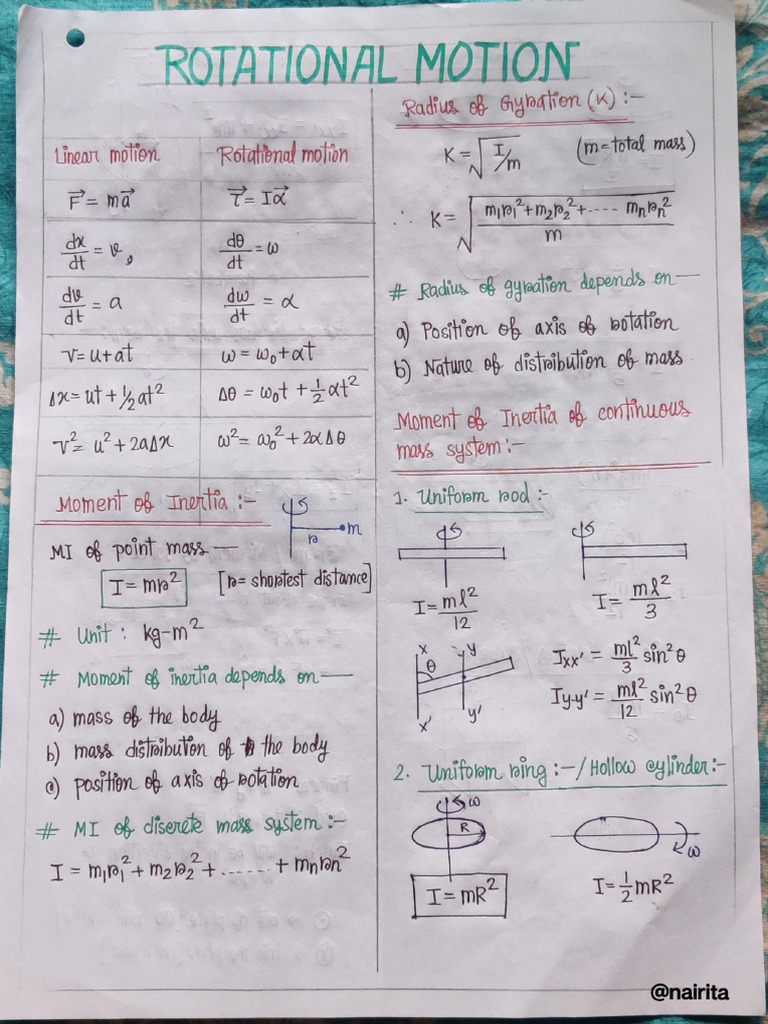 ROTATIONAL MOTION
Linear motion Rotational motion
F⃗ = ma⃗ τ⃗ = Iα⃗
dx/dt = v, dθ/dt = ω
dv/dt = a dω/dt = α
v = u + at ω = ω₀ + αt
Δx = ut + 1/2 at² Δθ = ω₀t + 1/2 αt²
v² = u² + 2aΔx ω² = ω₀² + 2αΔθ
Moment of Inertia :-
r m
MI of point mass —
I = mr² [r = shortest distance]
# Unit : kg-m²
# Moment of inertia depends on —
a) mass of the body
b) mass distribution of the body
c) position of axis of rotation
# MI of discrete mass system :-
I = m₁r₁² + m₂r₂² + ...... + mₙrₙ²
Radius of Gyration (K) :-
K = √(I/m) (m = total mass)
∴ K = √((m₁r₁² + m₂r₂² + ..... mₙrₙ²)/m)
# Radius of gyration depends on —
a) Position of axis of rotation
b) Nature of distribution of mass.
Moment of Inertia of continuous
mass system :-
1. Uniform rod :-
I = ml²/12 I = ml²/3
x y
θ
x' y'
Ixx' = ml²/3 sin²θ
Iy-y' = ml²/12 sin²θ
2. Uniform ring :- / Hollow cylinder :-
ω
R
ω
I = mR² I = 1/2 mR²
@nairita